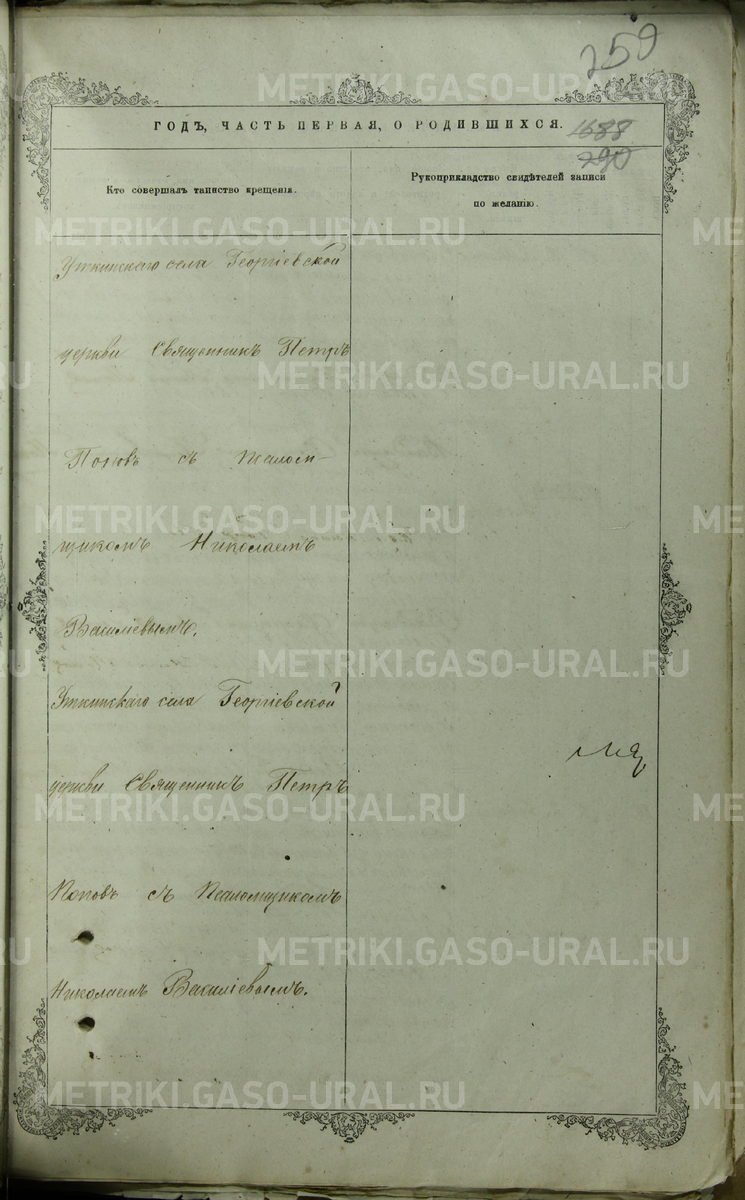 259
ГОДЪ, ЧАСТЬ ПЕРВАЯ, О РОДИВШИХСЯ.
1688
290
Кто совершалъ таинство крещенія.
Рукоприкладство свидѣтелей записи
по желанію.
Уткинскаго села Георгіевской
церкви Священникъ Петръ
Поповъ съ Псалом-
щикомъ Николаемъ
Василіевымъ.
Уткинскаго села Георгіевской
церкви Священникъ Петръ
Поповъ съ Псаломщикомъ
Николаемъ Василіевымъ.
METRIKI.GASO-URAL.RU
METRIKI.GASO-URAL.RU
METRIKI.GASO-URAL.RU
METRIKI.GASO-URAL.RU
METRIKI.GASO-URAL.RU
METRIKI.GASO-URAL.RU
METRIKI.GASO-URAL.RU
METRIKI.GASO-URAL.RU